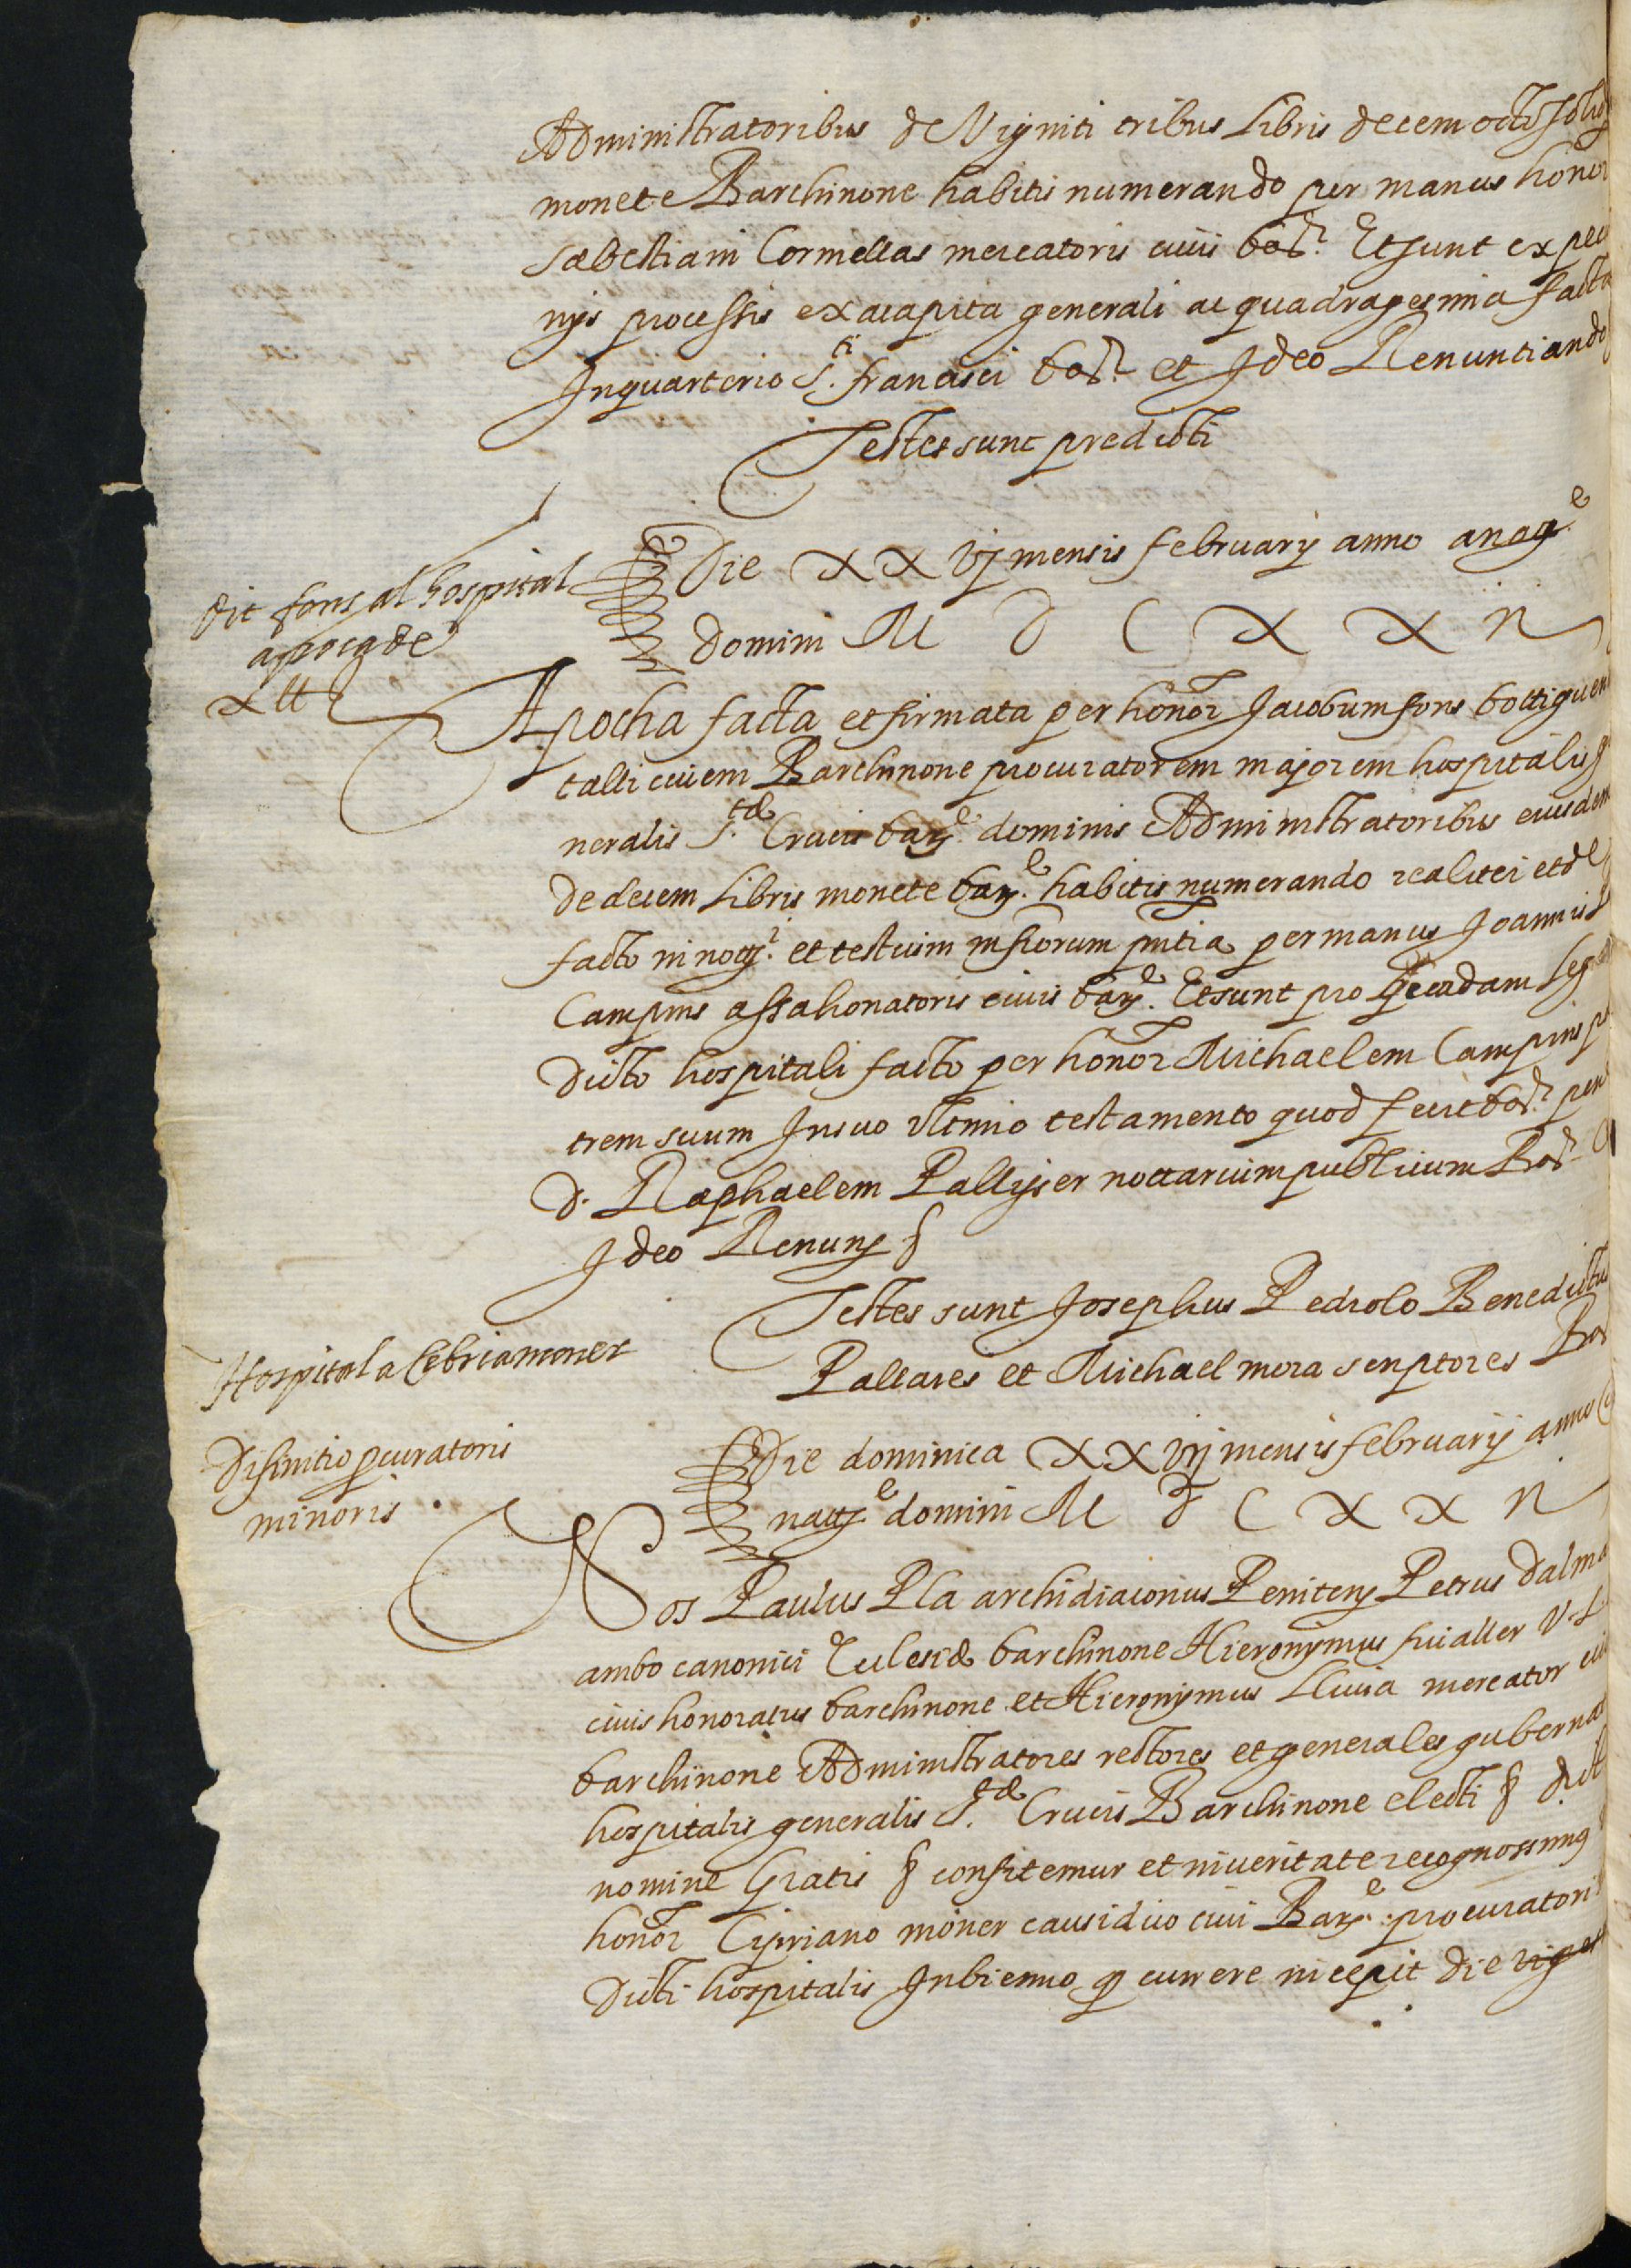 Administratoribus de Viginti tribus Libris decem octo solid
monete Barchinone habitis numerando per manus honor
sabestiani Cormellas mercatoris civis bar.ᵉ Et sunt ex pecu
nijs processis ex acapita generali ac quadragesima facta
Inquarterio S.ᵗⁱ francisci bar.ᵉ et Ideo Renuntiando
Testes sunt predicti
Die XXvj mensis february anno a nag.ᵉ
domini M D C X X ij
dit fons al hospital
apocq de
x ll
Apocha facta et firmata per honor Jacobum fons bottiguer
talli civem Barchinone procuratorem majorem hospitalis ge
neralis S.ᵗæ Crucis barᵉ. dominis Administratoribus eiusdem
de decem Libris monete barᵉ. habitis numerando realiter et de
facto in not. et testium infrorum pntia per manus Joannis
Campins assahonatoris civis barᵉ. Et sunt pro quodam leg
dicto hospitali facto per honor Michaelem Campins pa
trem suum In suo vltimo testamento quod fecit bar.ᵉ pen
d. Raphaelem Palliser nottarium publicum Bar.
Ideo Renunς §
Testes sunt Josephus Pedrolo Benedictus
Pallares et Michael mora scriptores Bar
Hospital a Cebria moner
Difinitio pcuratoris
minoris
Die dominica XXvij mensis february anno a
natᵉ domini M D C X X ij
Nos Paulus Pla archidiaconus Penitens Petrus dalma
ambo canonici Eclesiæ barchinone Hieronymus fivaller V. L.
civis honoratus barchinone et Hieronymus Lluia mercator civi
barchinone Administratores rectores et generales guberna
hospitalis generalis S.ᵗæ Crucis Barchinone electi § dict
nomine Gratis § confitemur et in veritate recognossimus
honor Cipriano moner causidico civi Barᵉ. procuratori
dicti hospitalis In biennio q currere incepit die viges